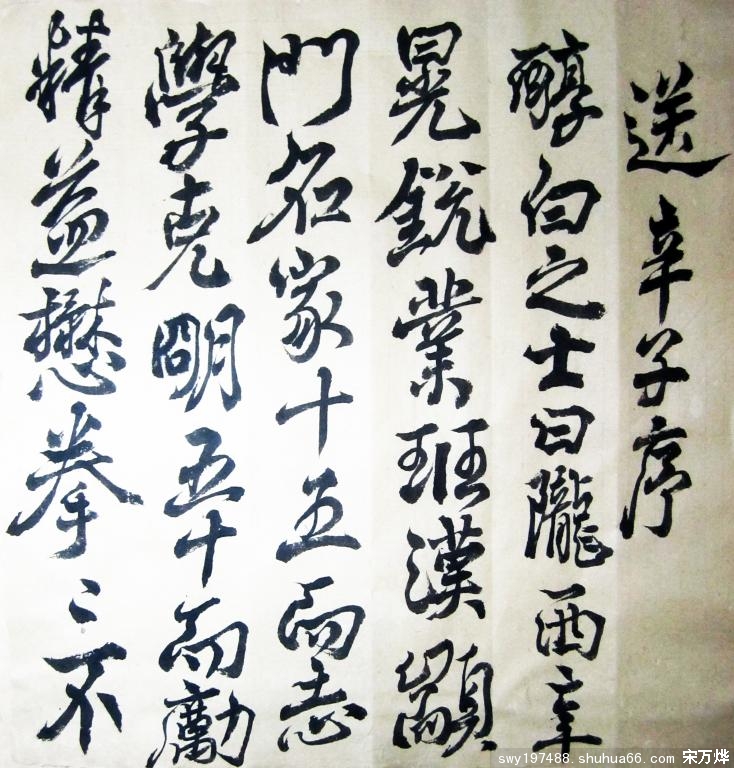 送辛子序
醇白之士曰隴西辛
晃銳業班漢顓
門名家十五而志
學克朙五十而勵
精益懋拳〻不
swy197488. shuhua66. com 宋万烨